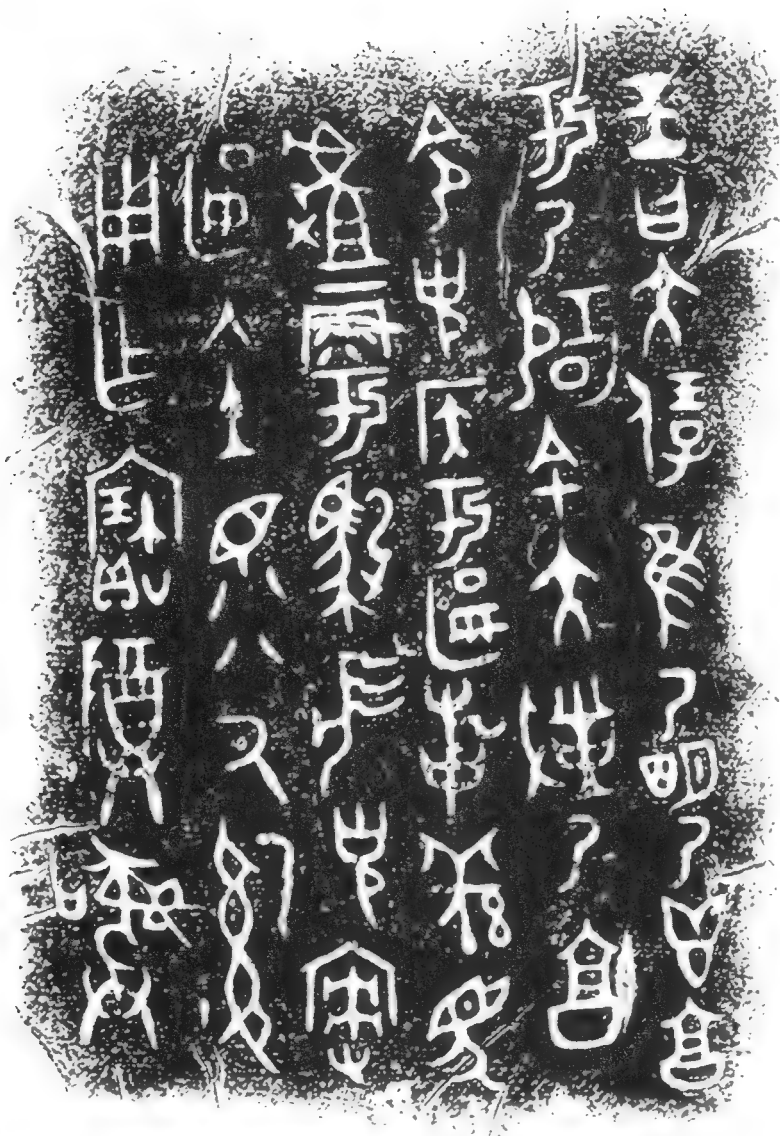 王曰大保隹乃明乃鬯享
于乃辟余大對乃享
令克侯于匽旃羌馬
𠭯雩馭髟克宙
匽入土眔氒𤔲
用乍寶尊彝